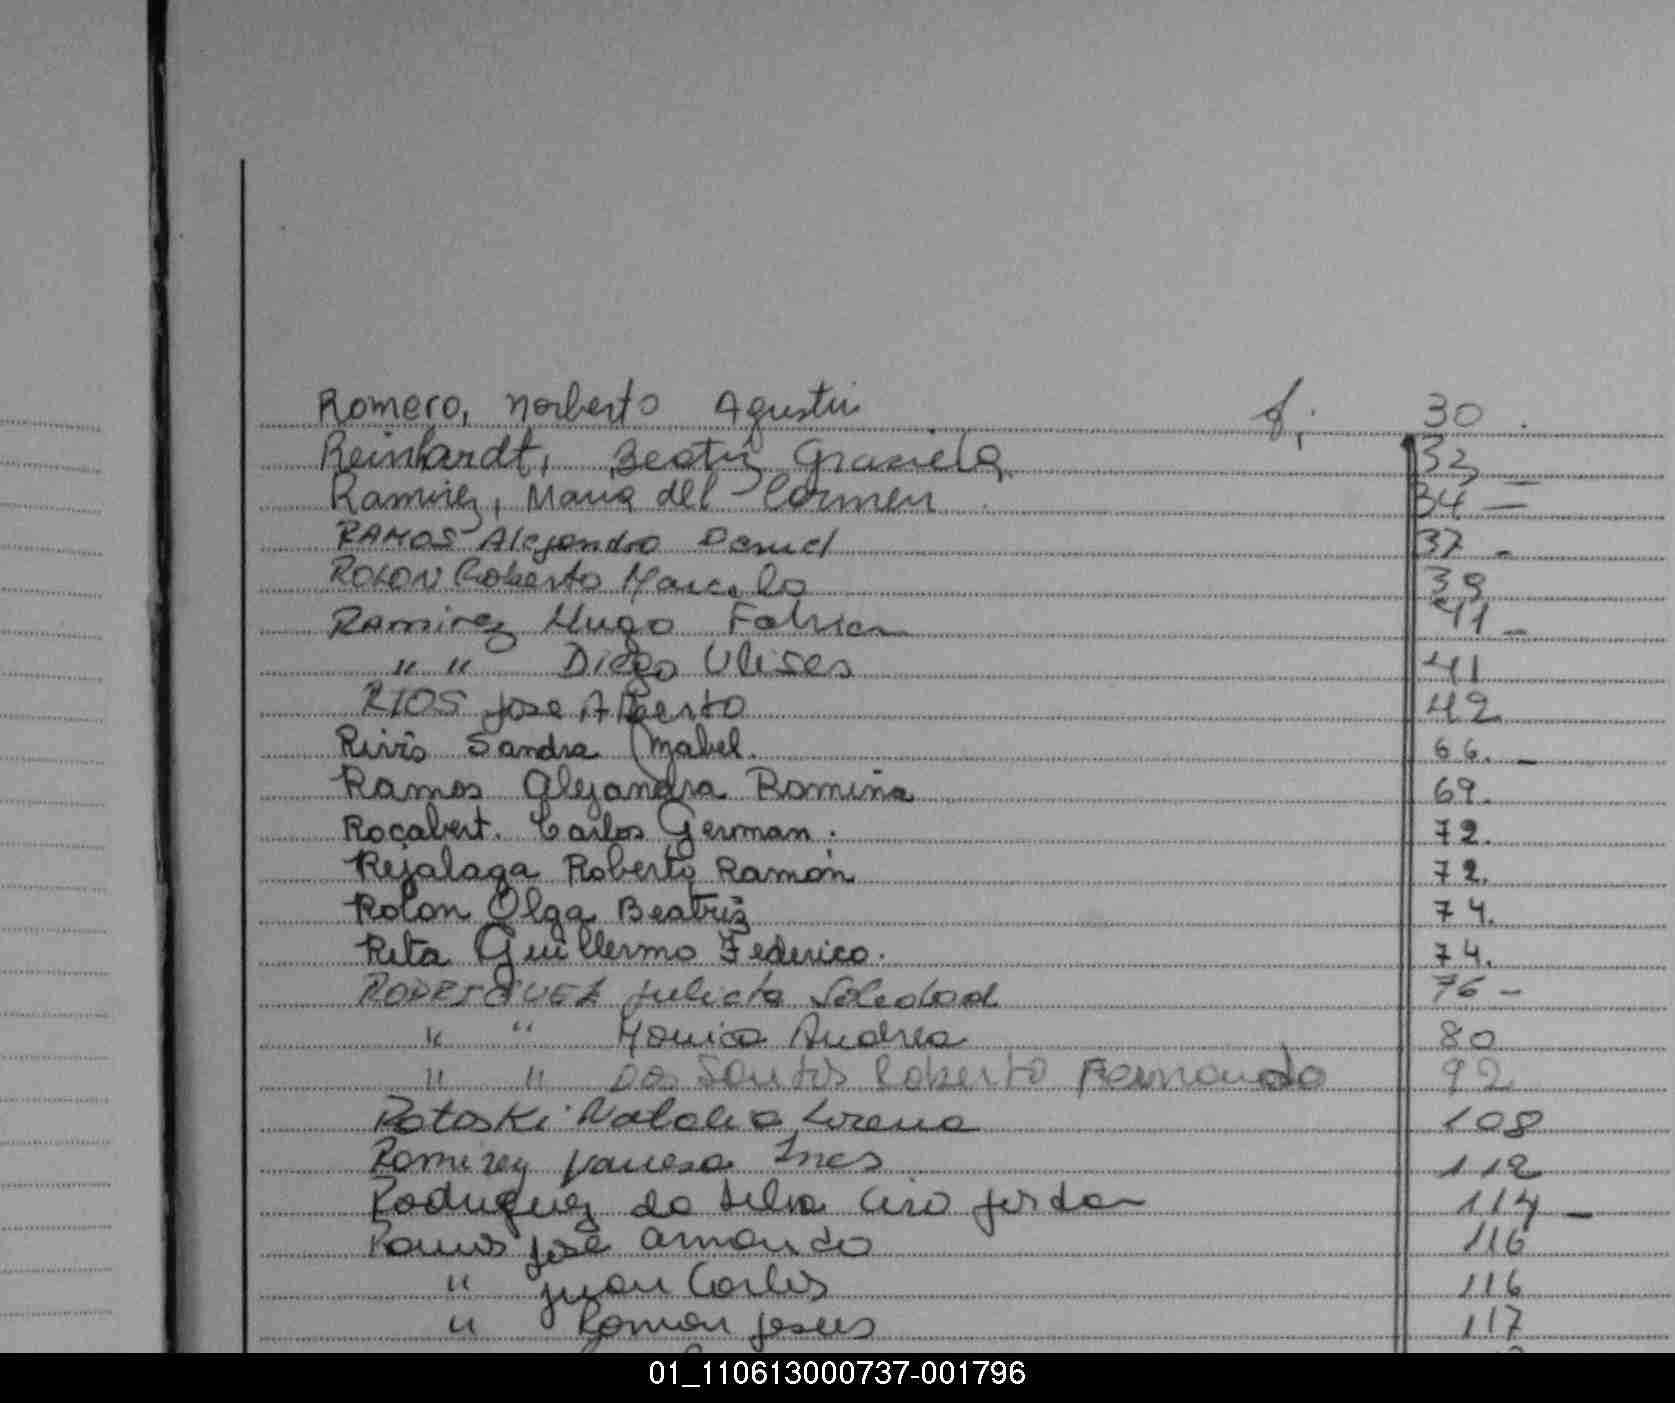 Romero, Norberto Agustin f. 30
Reinhardt, Beatriz Graciela 33
Ramirez, Maria del Carmen 34 -
RAMOS Alejandro Daniel 37 -
ROLON Roberto Marcelo 39
Ramirez Hugo Fabian 41 -
" " Diego Ulises 41
RIOS Jose Alberto 42
Sandra Mabel. 66. -
Ramos Alejandra Romina 69.
Rocabert. Carlos German. 72.
Rejalaga Roberto Ramón 72.
Rolon Olga Beatriz 74.
Reta Guillermo Federico. 74.
RODRIGUEZ Julieta Soledad 76 -
" " Monica Andrea 80
" " Dos Santos Roberto Fernando 92
Potoski Natalia Lorena 108
Ramirez Vanesa Ines 112
Rodriguez da Silva Ciro 114 -
Ramos José Armando 116
" Juan Carlos 116
" Ramon Jesus 117
01_110613000737-001796